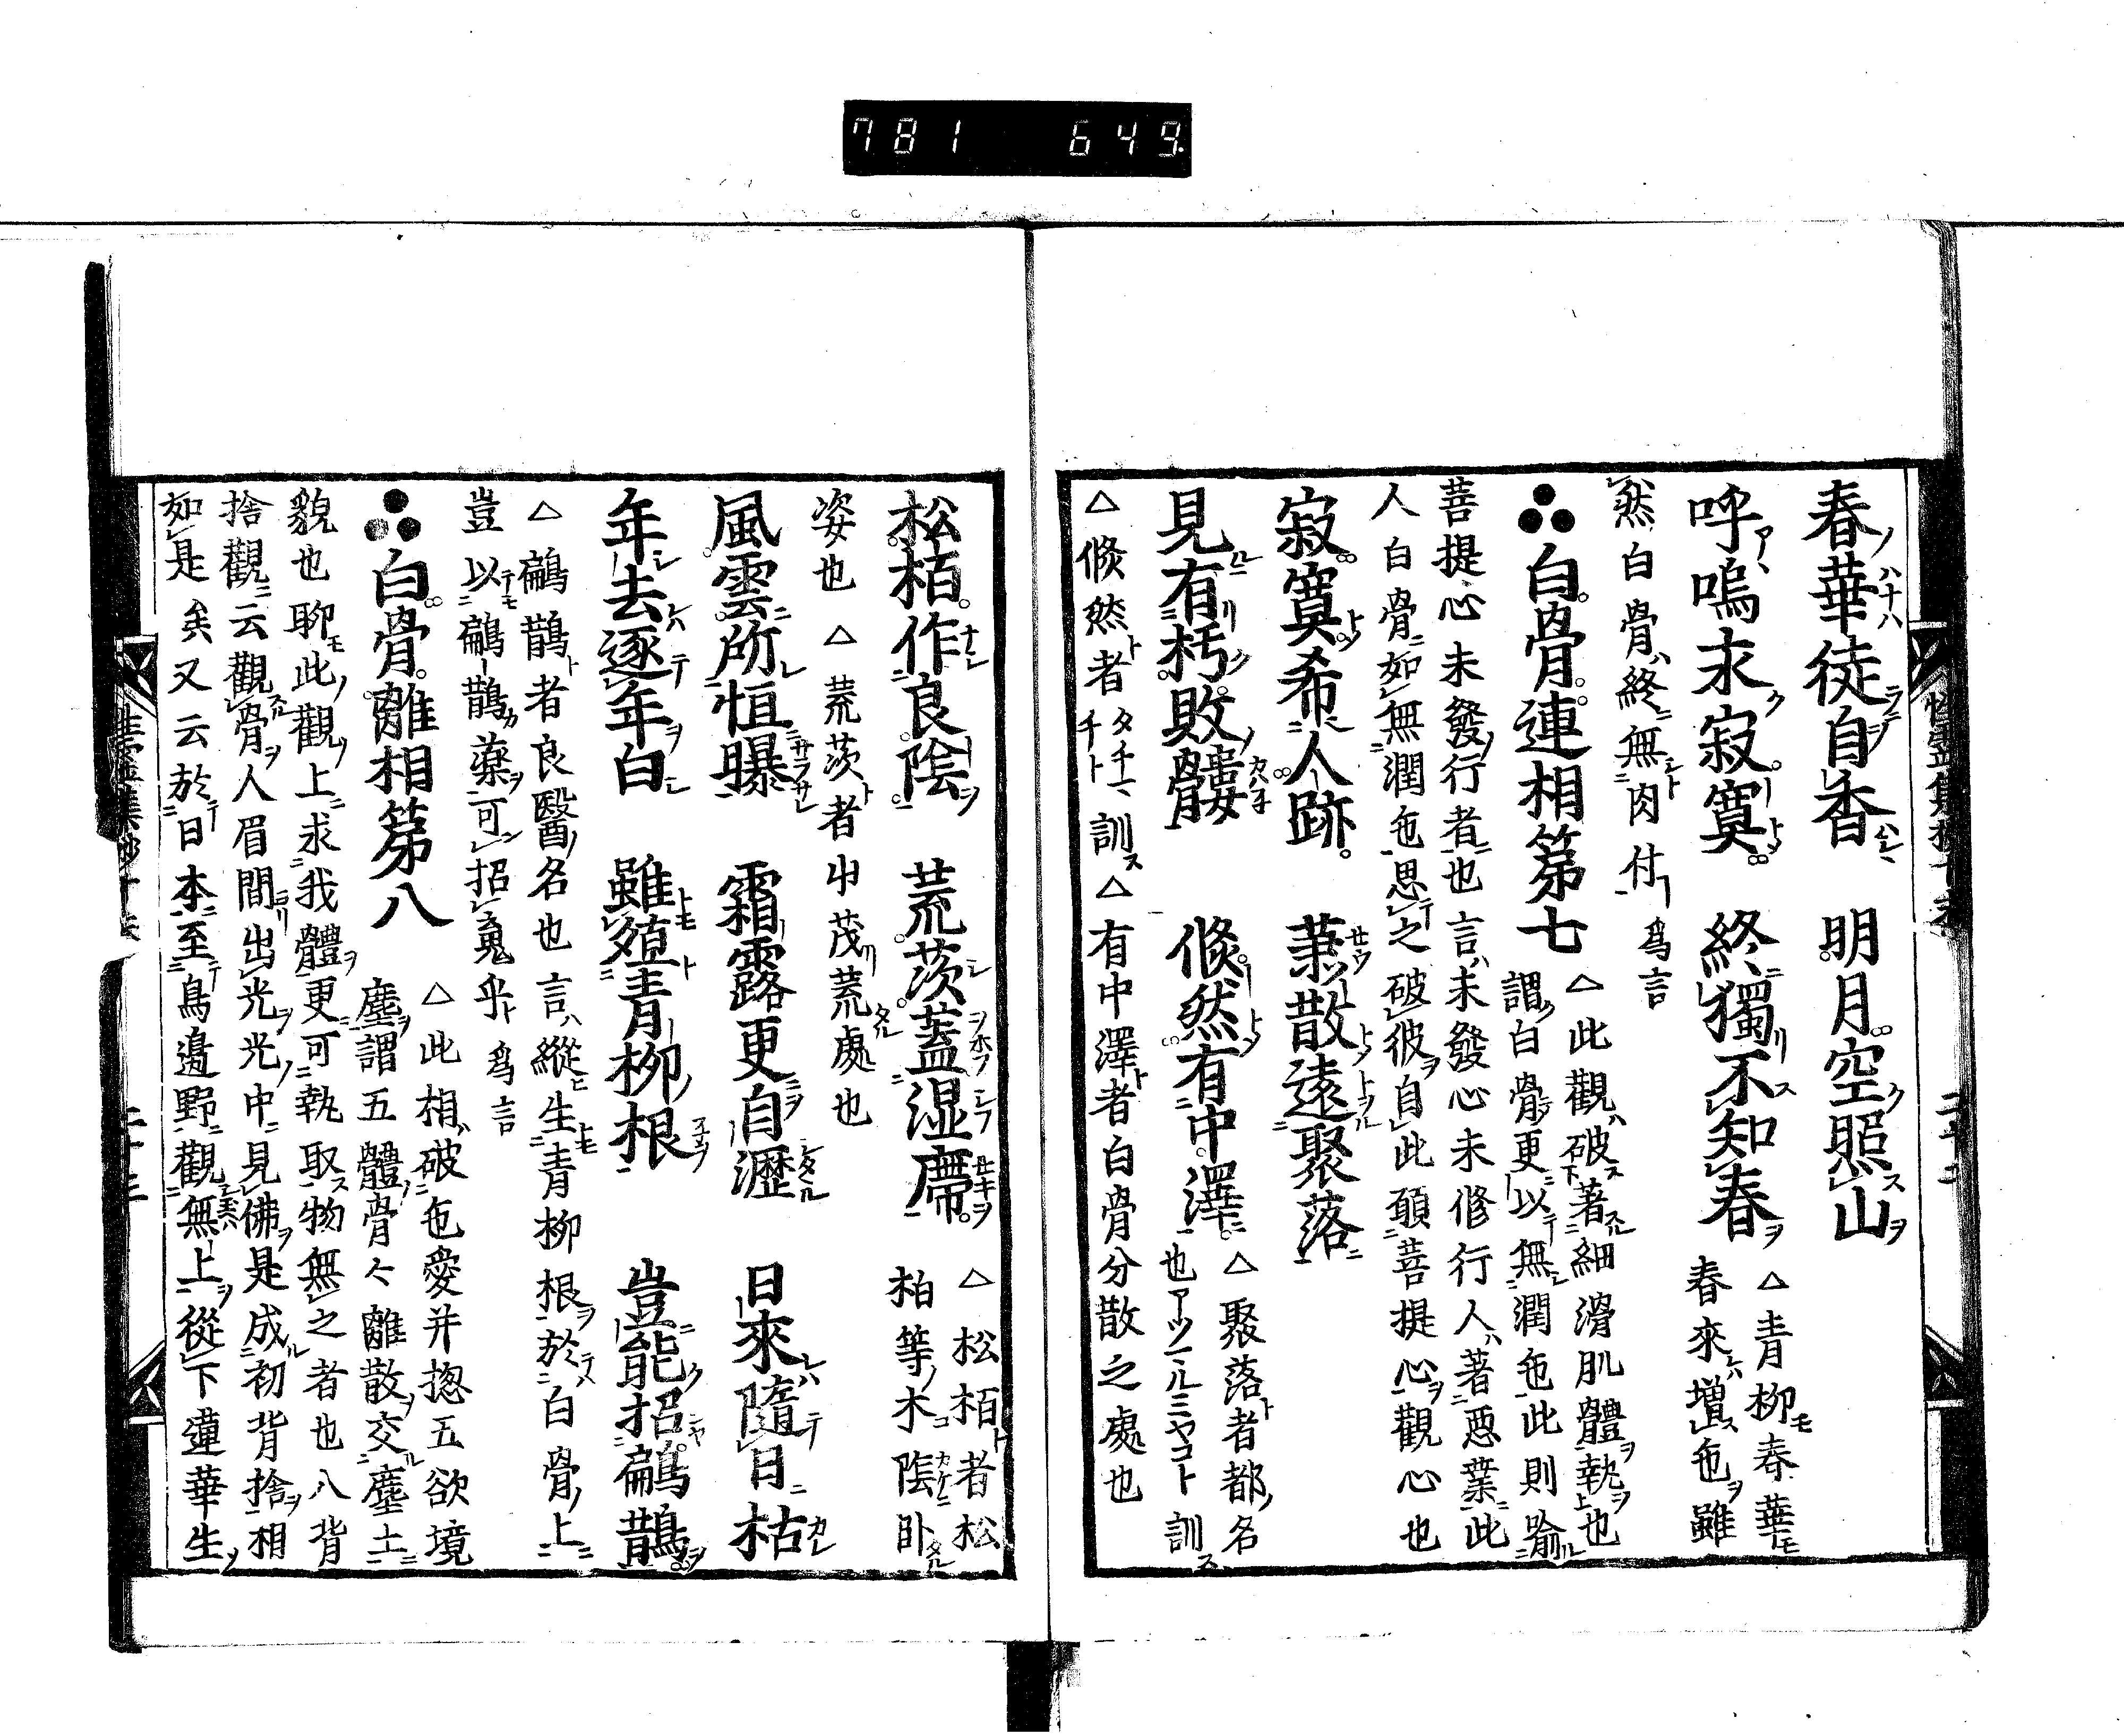 781 649
春華徒自香 明月空照山
呼嗚求寂寞 終獨不知春
△青柳春華
春來增色雖
然白骨終無肉付爲言
白骨連相第七
△此觀破著細滑肌體執也
謂白骨更以無潤色此則喻
菩提心未發行者也言未發心未修行人著惡業此
人白骨如無潤色思之破彼自此願菩提心觀心也
寂寞希人跡 蕭散遠聚落
見有朽敗髏 倐然有中澤
△聚落者都名
也アツマルミヤコト訓ス
△倐然者タチマチト訓ス△有中澤者白骨分散之處也
松栢作良陰 荒茨蓋湿席
△松栢者松
柏等木陰卧
姿也△荒茨者艸茂荒處也
風雲所恒曝 霜露更自瀝 日來隨日枯
年去逐年白 雖殖青柳根 豈能招鶣鵲
△鶣鵲者良醫名也言縱生青柳根於白骨上
豈以鶣鵲藥可招魂乎爲言
白骨離相第八
△此相破色愛并揔五欲境
塵謂五體骨々離散交塵土
貌也聊此觀上求我體更可執取物無之者也八背
捨觀云觀骨人眉間出光光中見佛是成初背捨相
如是矣又云於日本至鳥邉野觀無上從下蓮華生